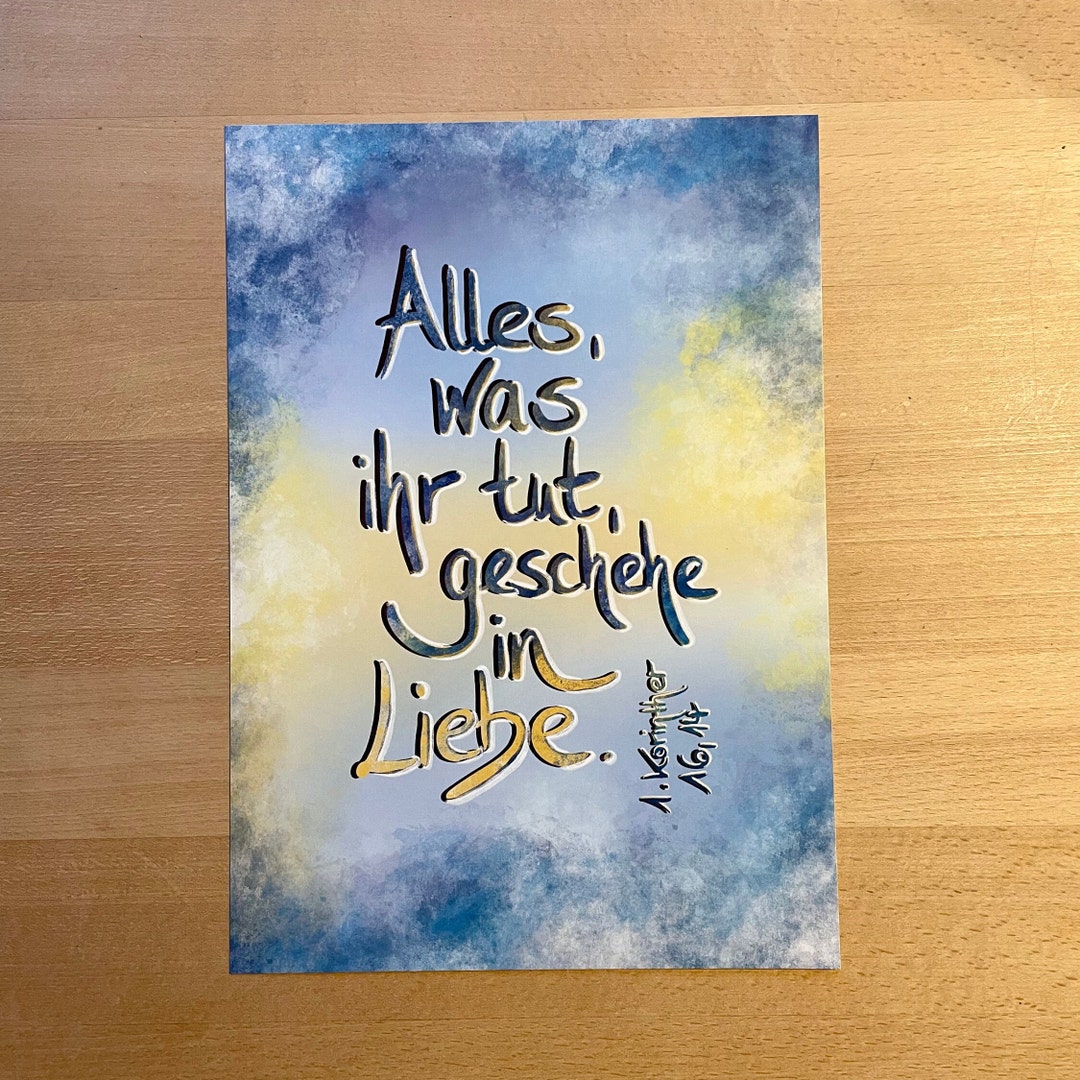 Alles,
was
ihr tut,
geschehe
in
Liebe.
1. Korinther
16, 14